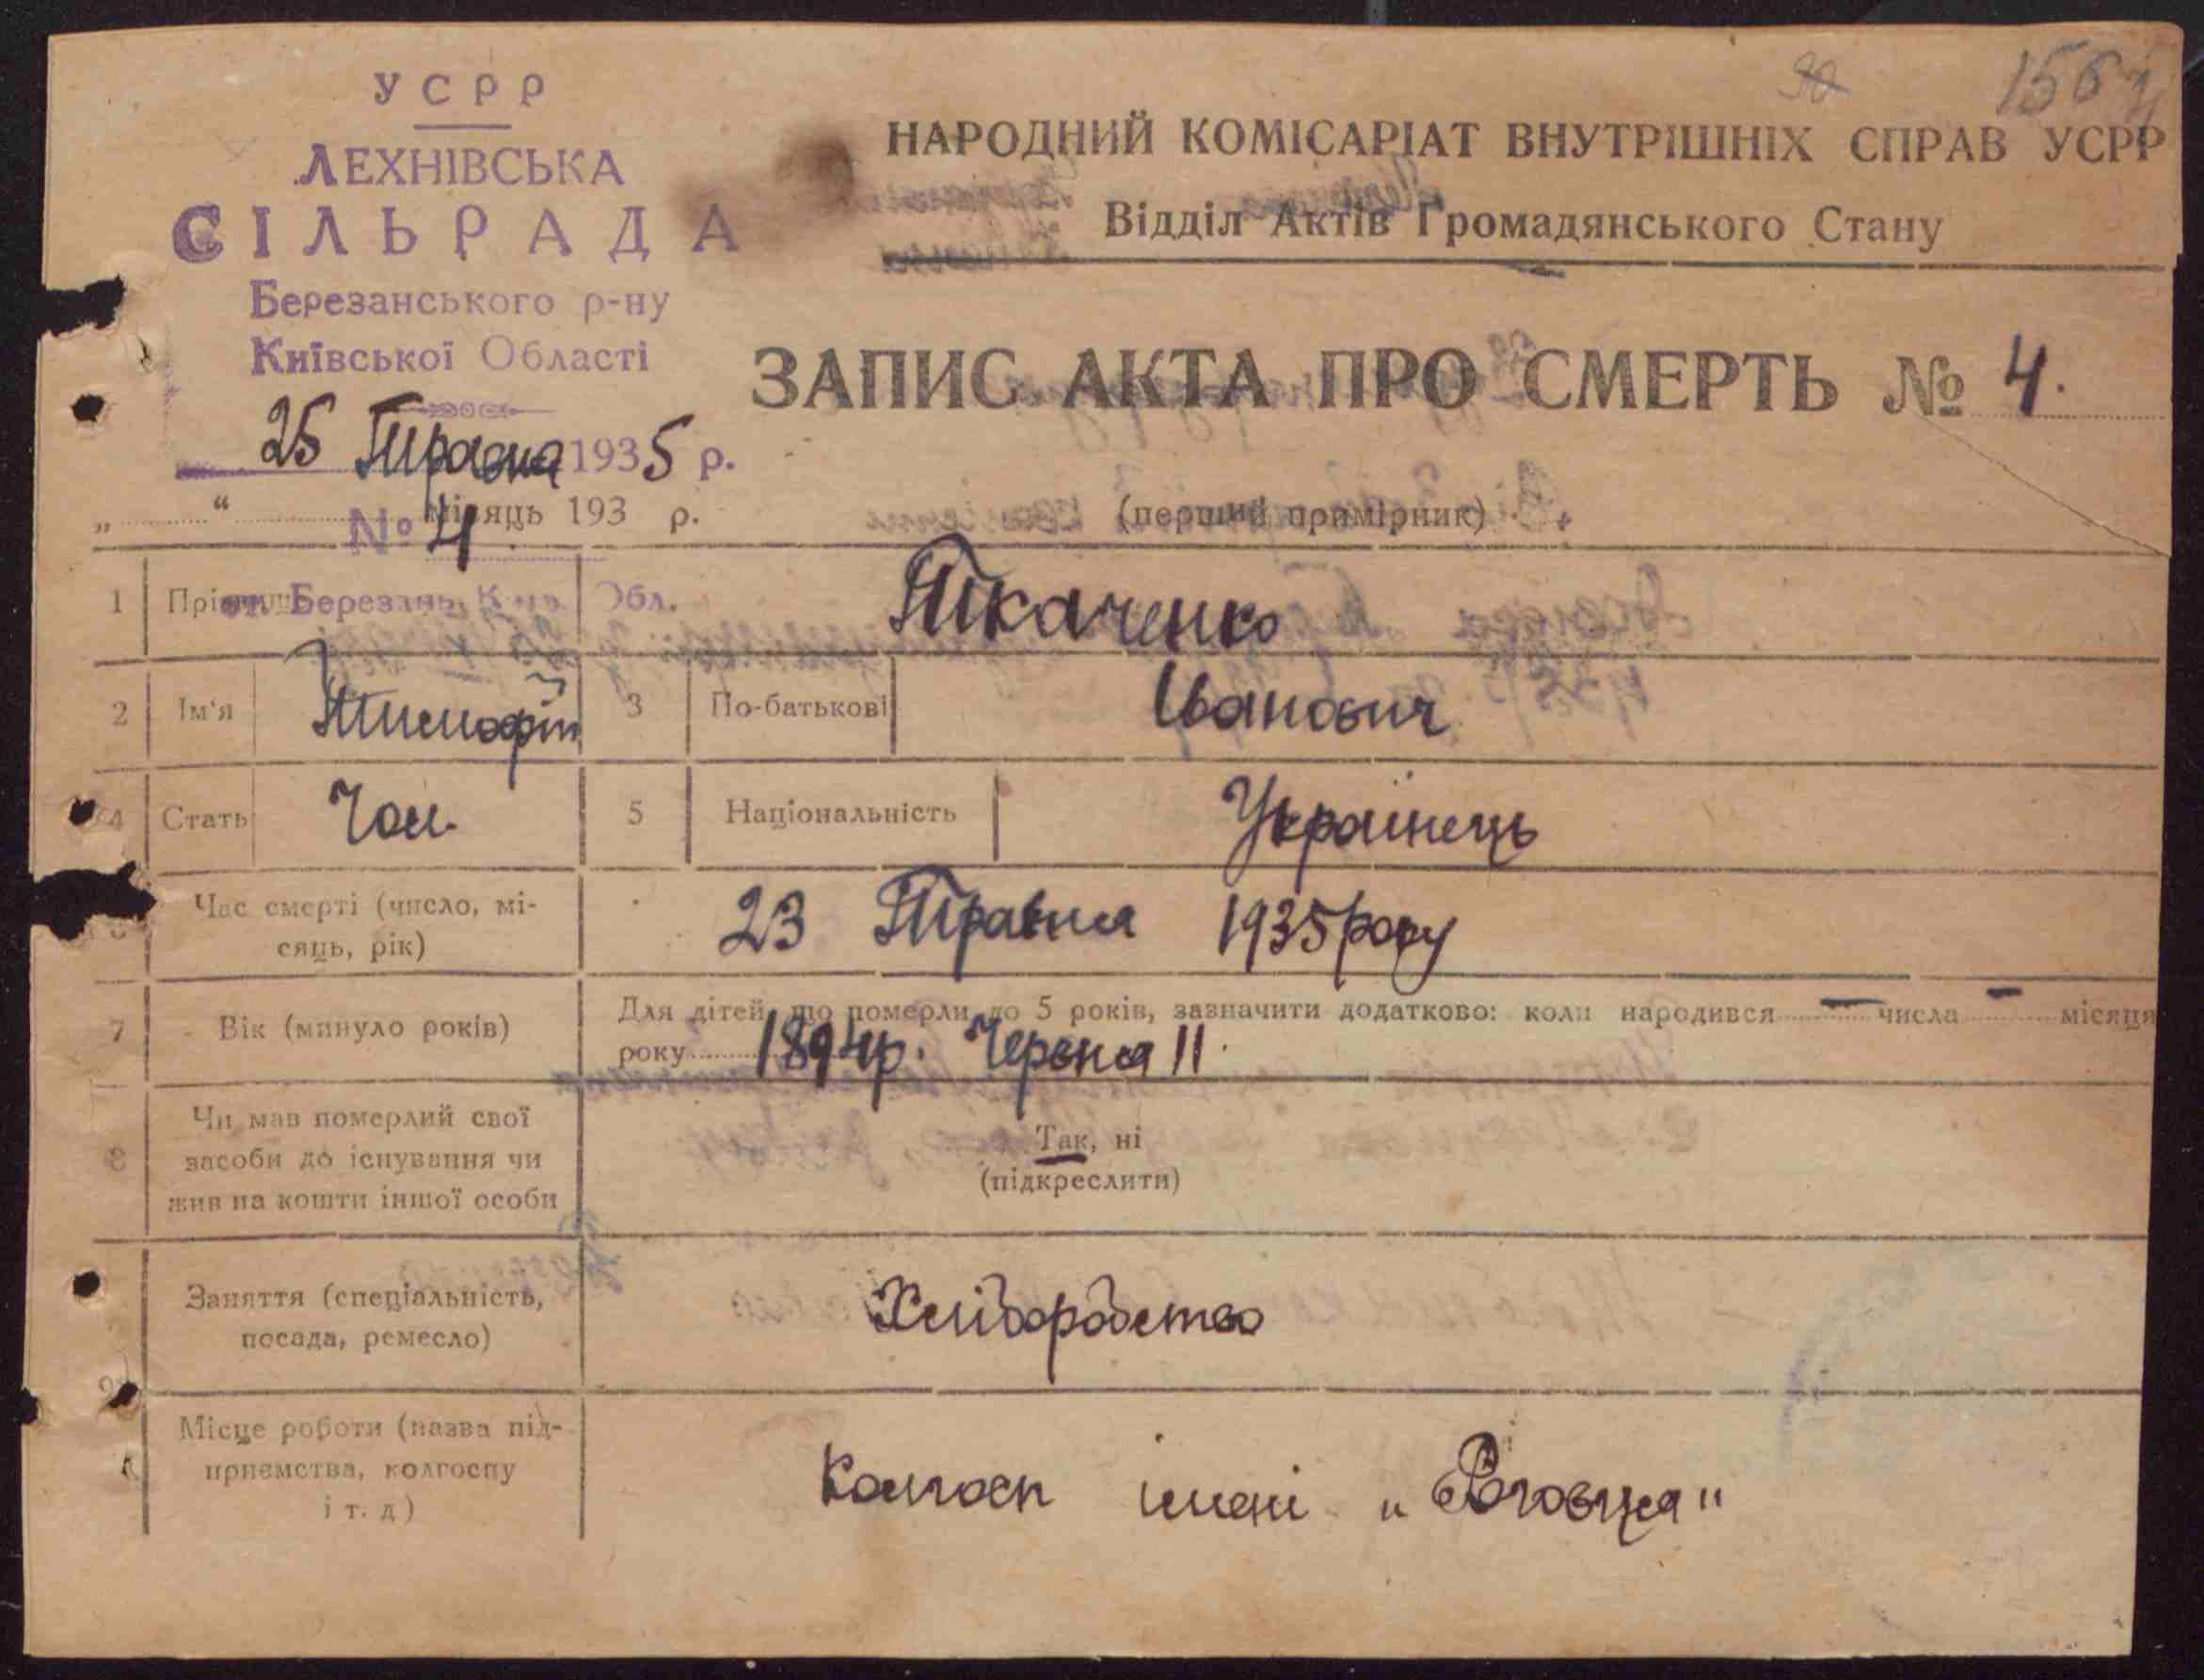 УСРР
ЛЕХНІВСЬКА
СІЛЬРАДА
Березанського р-ну
Київської Області
25 Травня 1935 р.
№ 4
ст. Березань, К Обл.
156
НАРОДНИЙ КОМІСАРІАТ ВНУТРІШНІХ СПРАВ УСРР
Відділ Актів Громадянського Стану
ЗАПИС АКТА ПРО СМЕРТЬ № 4.
„ “ місяць 193 р.
(перший примірник)
1 Прізвище Ткаченко
2 Ім'я Тимофій 3 По-батькові Іванович
4 Стать Чол. 5 Національність Українець
Час смерті (число, мі-
сяць, рік) 23 Травня 1935 року
7 Вік (минуло років) Для дітей, що померли до 5 років, зазначити додатково: коли народився — числа — місяця
року 1894 р. Червня 11.
Чи мав померлий свої
8 засоби до існування чи Так, ні
жив на кошти іншої особи (підкреслити)
Заняття (спеціальність, Хліборобство
посада, ремесло)
9
Місце роботи (назва під-
приємства, колгоспу Колгосп імені
і т. д)